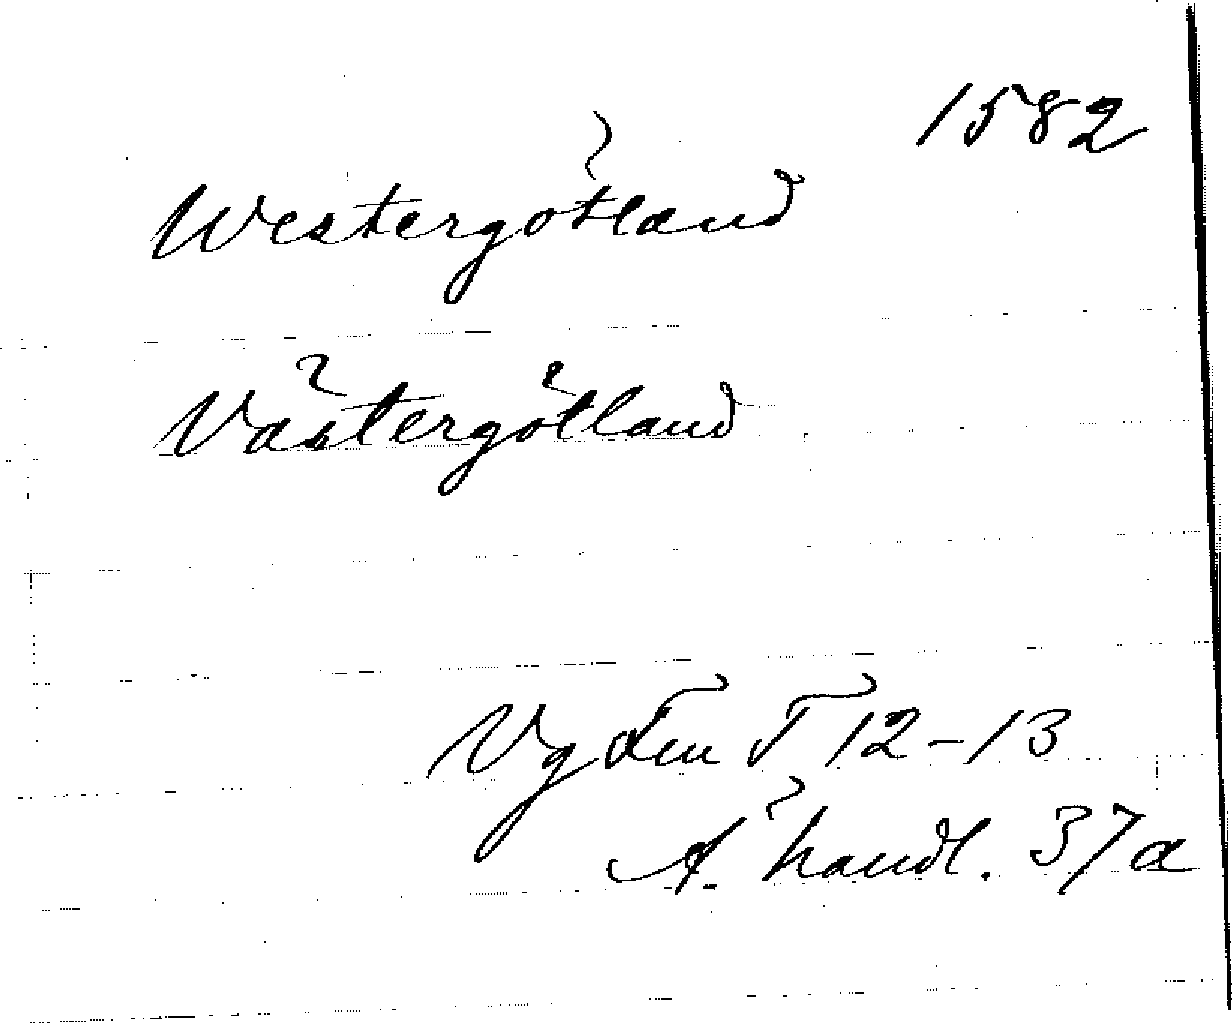 1582
Westergötland
Västergötland
Vg Ten T 12-13
Ä. handl. 37a